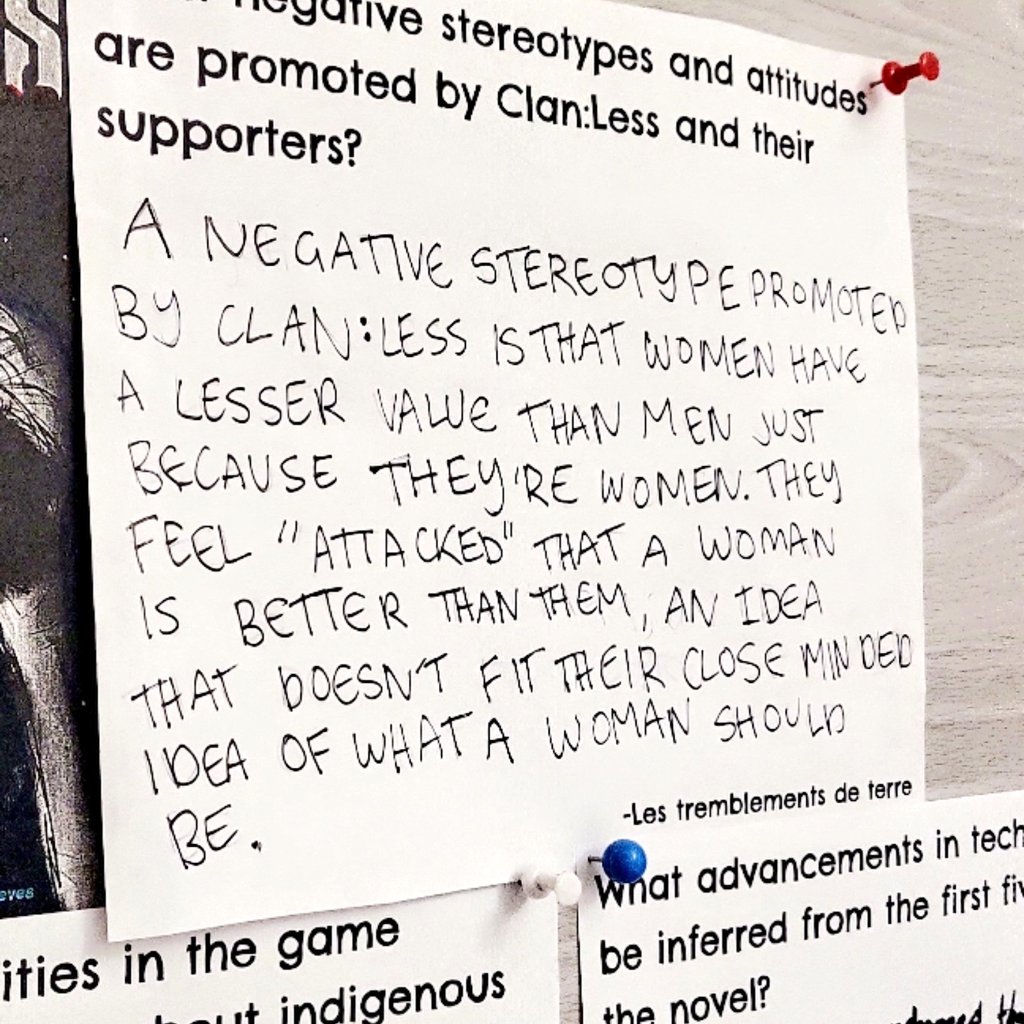 negative stereotypes and attitudes
are promoted by Clan:Less and their
supporters?
A NEGATIVE STEREOTYPE PROMOTED
BY CLAN:LESS IS THAT WOMEN HAVE
A LESSER VALUE THAN MEN JUST
BECAUSE THEY'RE WOMEN. THEY
FEEL "ATTACKED" THAT A WOMAN
IS BETTER THAN THEM, AN IDEA
THAT DOESN'T FIT THEIR CLOSE MINDED
IDEA OF WHAT A WOMAN SHOULD
BE.
-Les tremblements de terre
eves
ities in the game
out indigenous
What advancements in tech
be inferred from the first fiv
the novel?